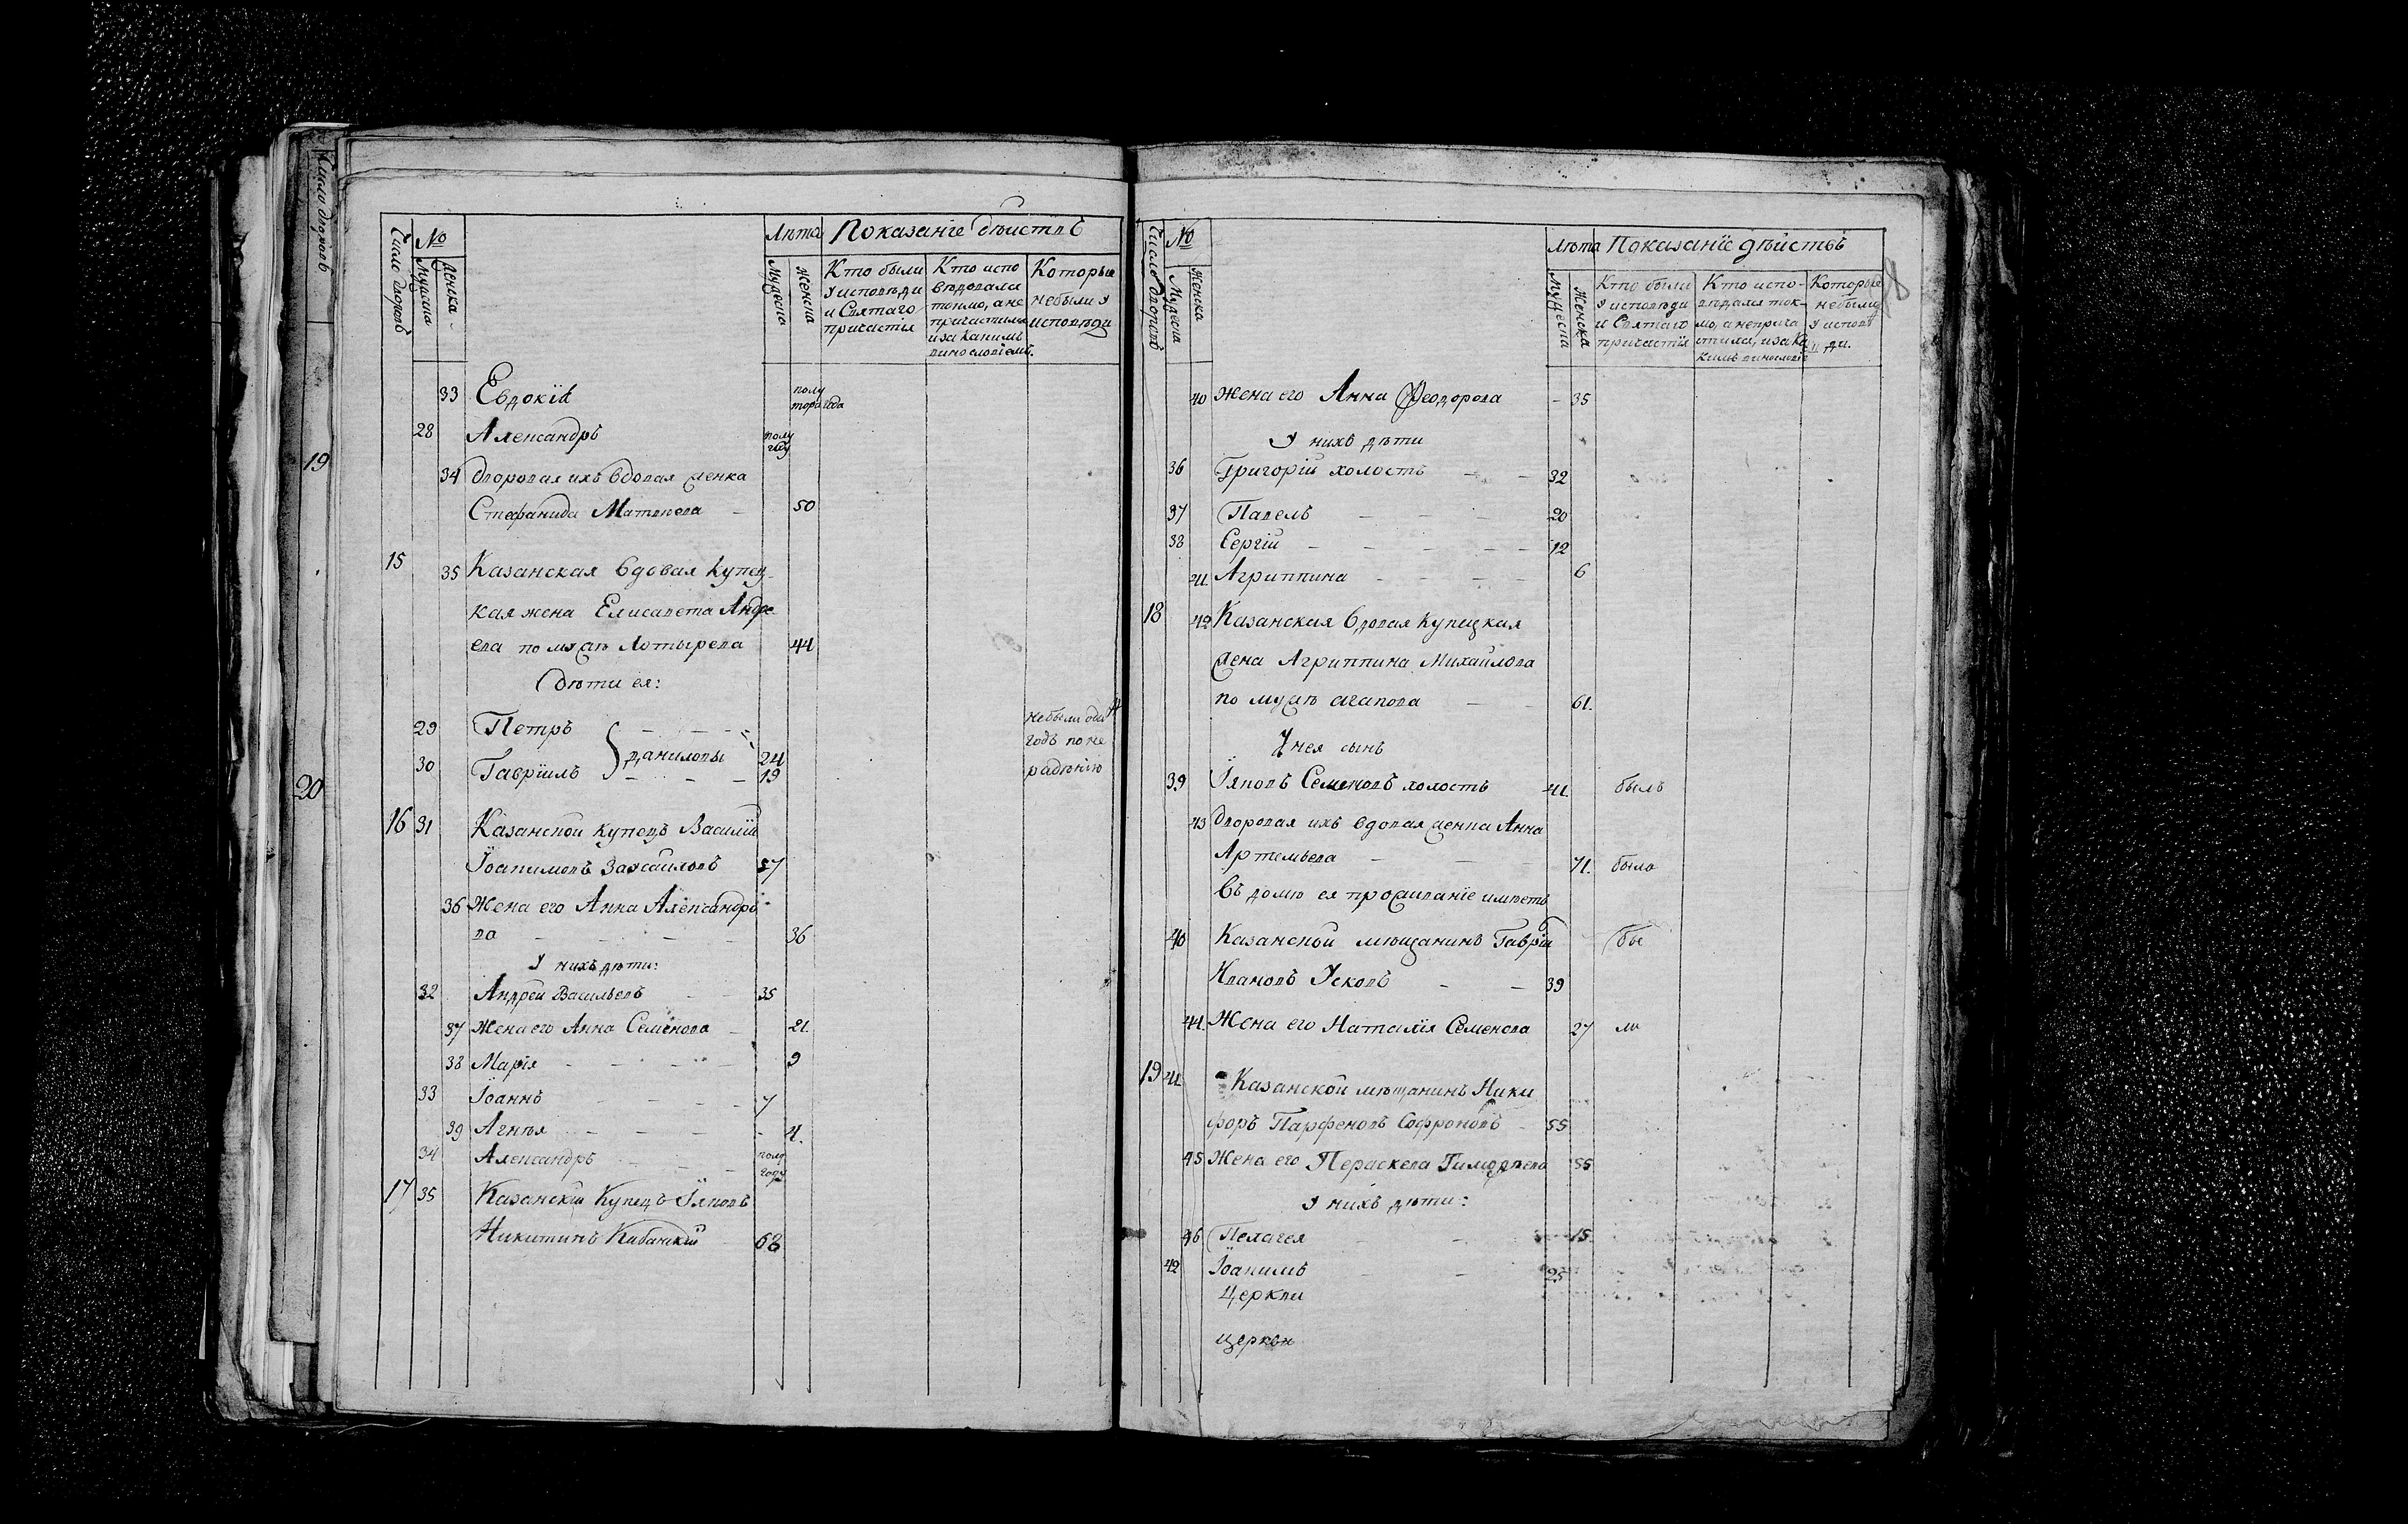 Число дворовъ
19
20
Число дворовъ
№
Мужеска
Женска
Лѣта
Показанїе дѣиствъ
Мужеска
Женска
Кто были у исповѣди и Святаго причастїя
Кто испо вѣдовали токмо, а не причастились и за какимъ винословїемъ.
Которые небыли у исповѣди
33 Евдокїа полу тора года
28 Александръ полу году
34 Дворовая ихъ вдовая женка
Стефанида Матвѣева – 50
15 35 Казанская вдовая купец-
кая жена Елисавета Андре
ева по мужѣ Лотырева 44
Дѣти ея:
29 Петръ 24
Даниловы
30 Гаврїилъ 19
небыли
годъ по не
радѣнїю
16 31 Казанской купецъ Василїй
Їоакимовъ 57
36 Жена его Анна Александро
ва 36
У нихъ дѣти:
32 Андрей Васильевъ 35
37 Жена его Анна Семенова – 21.
38 Марїя 9
33 Їоаннъ 7
39 Агнїя 4.
34 Александръ полу году
17 35 Казанскїй Купецъ Їяковъ
Никитинъ 68
Число дворовъ
№
Мужеска
Женска
Лѣта
Показанїе дѣйствъ
Мужеска
Женска
Кто были у исповѣди и Святаго причастїя
Кто испо- вѣдался ток- мо, а неприча стился, и за ка кимъ винословїе
Которые небыли у исповѣ ди.
8
40 Жена его Анна Феодорова – 35
У нихъ дѣти
36 Григорїй холостъ – – 32
37 Павелъ – – – 20
38 Сергїй – – – – – 12
41. Агриппина – – – – 6
18 42 Казанская вдовая купецкая
жена Агриппина Михайлова
по мужѣ агапова – – 61.
У нея сынъ
39 Їяковъ Семеновъ холостъ 41. былъ
43 Дворовая ихъ вдовая женка Анна
Артемьева – – – 71. была
Въ домѣ ея проживанїе имѣетъ
40 Казанской мѣщанинъ Гаврїи бы
Ивановъ Усковъ – – 39
44. Жена его Наталїя Семенова 27 ли
19 41. Казанской мѣщанинъ Ники
форъ Парфеновъ Софроновъ – 55
45 Жена его Параскева Тимофѣева 55
У нихъ дѣти:
46 Пелагея – – 15.
42 Їоакимъ – – 25
Церкви
церкви